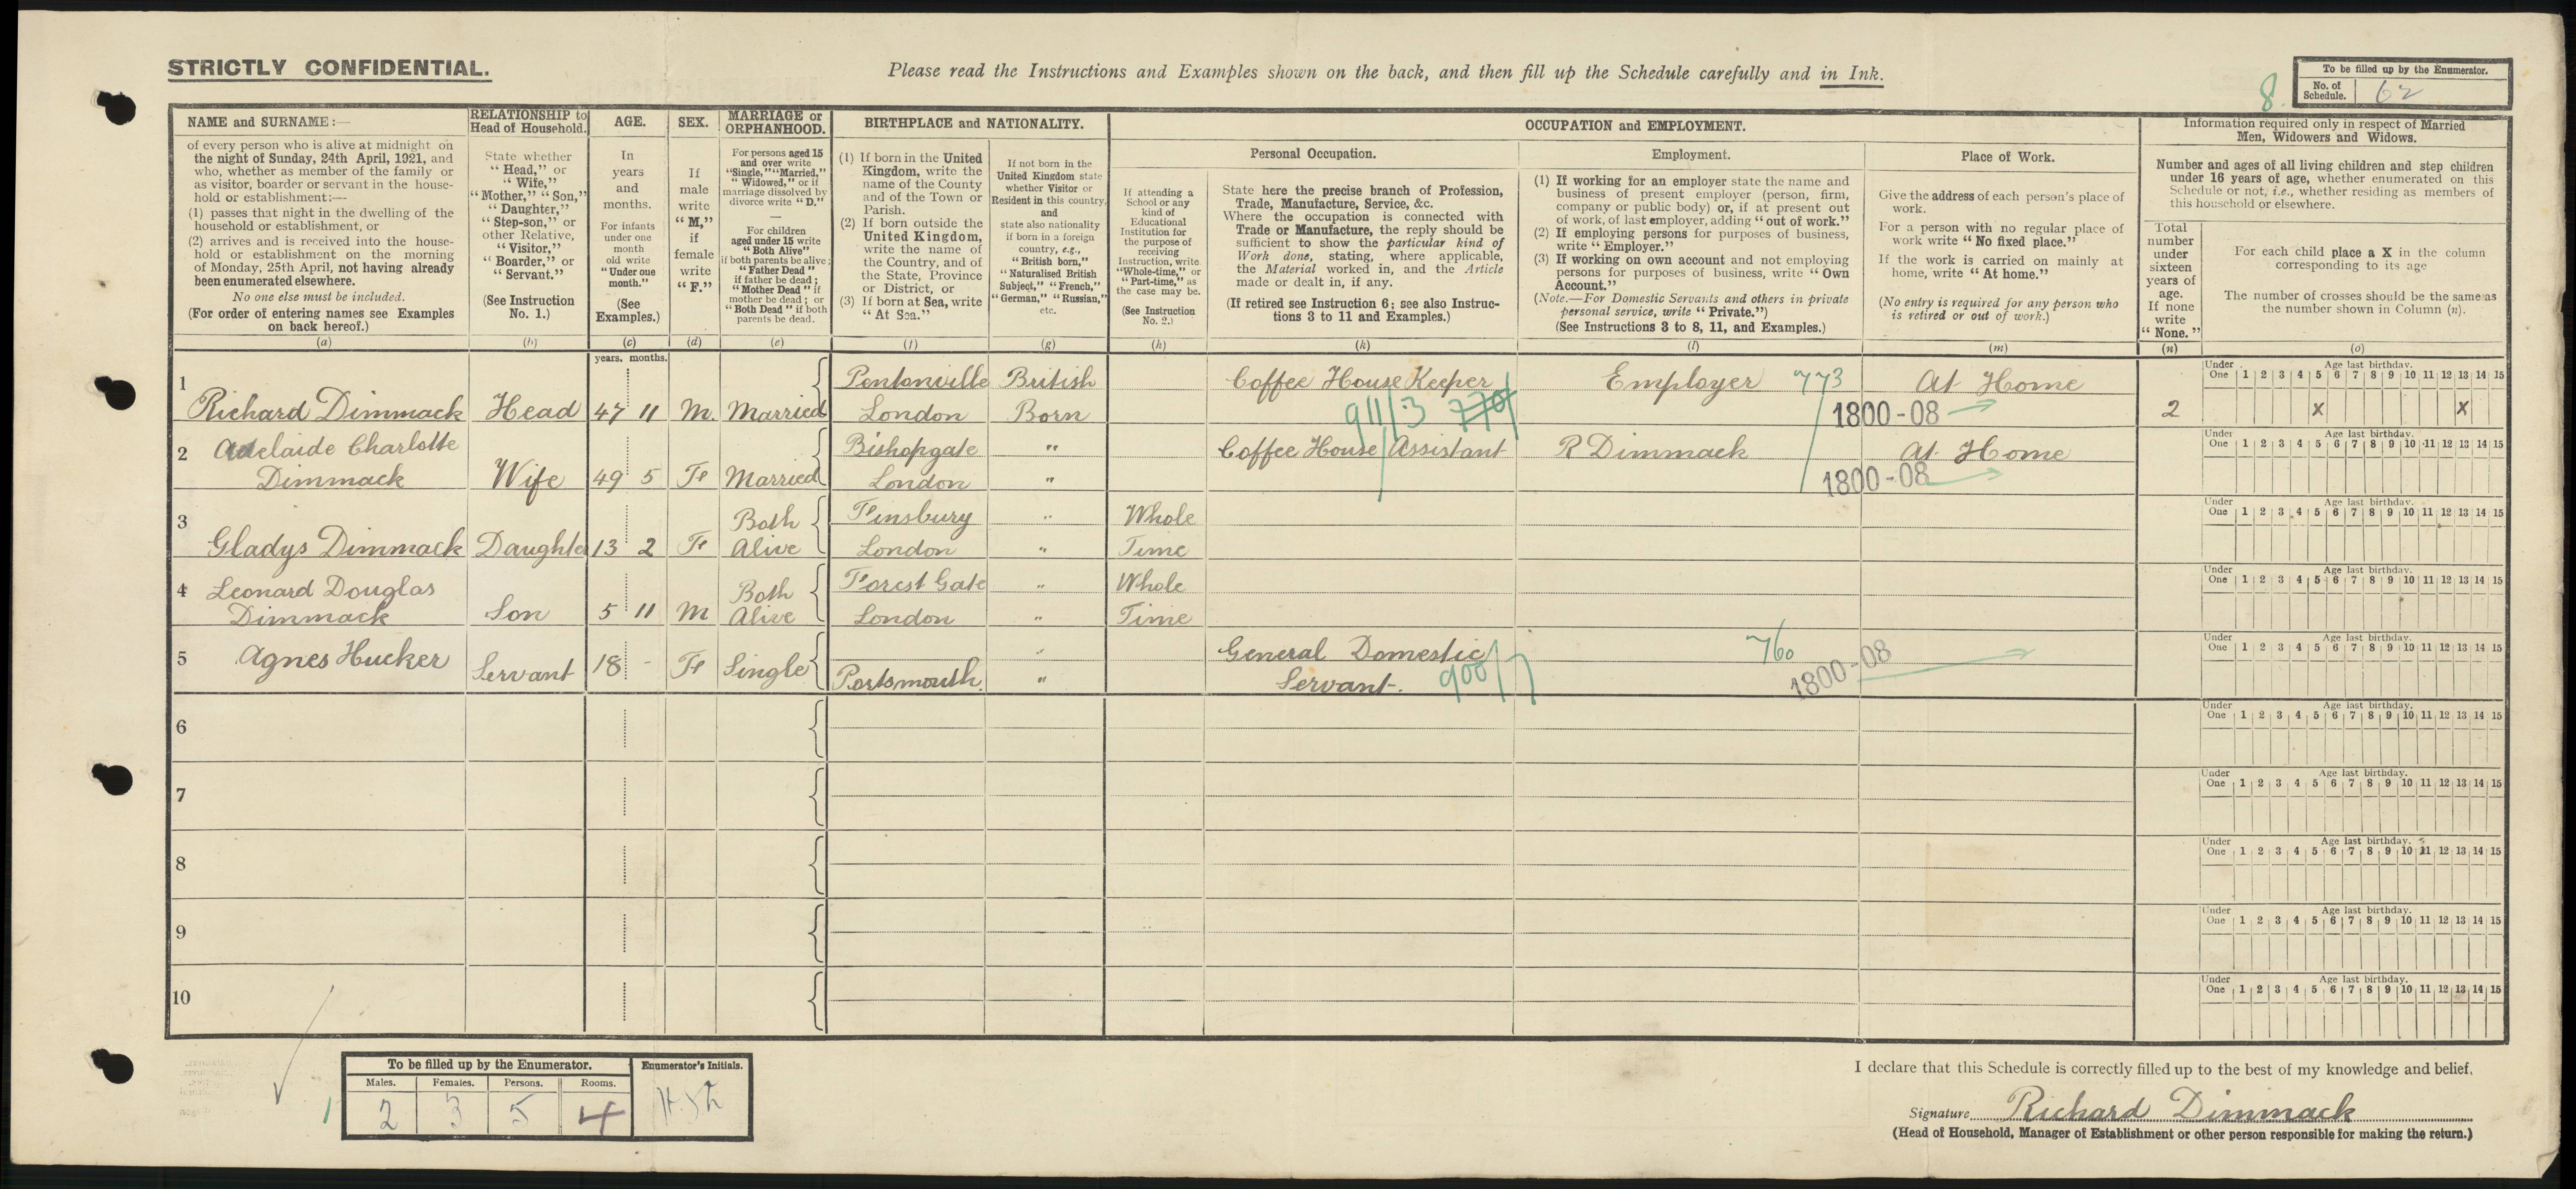 STRICTLY CONFIDENTIAL.
Please read the Instructions and Examples shown on the back, and then fill up the Schedule carefully and in Ink.
8.
To be filled up by the Enumerator.
No. of Schedule. 62
NAME and SURNAME:—
of every person who is alive at midnight on
the night of Sunday, 24th April, 1921, and
who, whether as member of the family or
as visitor, boarder or servant in the house-
hold or establishment:—
(1) passes that night in the dwelling of the
household or establishment, or
(2) arrives and is received into the house-
hold or establishment on the morning
of Monday, 25th April, not having already
been enumerated elsewhere.
No one else must be included.
(For order of entering names see Examples
on back hereof.)
(a)
RELATIONSHIP to
Head of Household.
State whether
"Head," or
"Wife,"
"Mother," "Son,"
"Daughter,"
"Step-son," or
other Relative,
"Visitor,"
"Boarder," or
"Servant."
(See Instruction
No. 1.)
(b)
AGE.
In
years
and
months.
For infants
under one
month
old write
"Under one
month."
(See
Examples.)
(c)
SEX.
If
male
write
"M,"
if
female
write
"F."
(d)
MARRIAGE or
ORPHANHOOD.
For persons aged 15
and over write
"Single," "Married,"
"Widowed," or if
marriage dissolved by
divorce write "D."
—
For children
aged under 15 write
"Both Alive"
if both parents be alive;
"Father Dead"
if father be dead;
"Mother Dead" if
mother be dead; or
"Both Dead" if both
parents be dead.
(e)
BIRTHPLACE and NATIONALITY.
(1) If born in the United
Kingdom, write the
name of the County
and of the Town or
Parish.
(2) If born outside the
United Kingdom,
write the name of
the Country, and of
the State, Province
or District, or
(3) If born at Sea, write
"At Sea."
(f)
If not born in the
United Kingdom state
whether Visitor or
Resident in this country,
and
state also nationality
if born in a foreign
country, e.g.,
"British born,"
"Naturalised British
Subject," "French,"
"German," "Russian,"
etc.
(g)
OCCUPATION and EMPLOYMENT.
If attending a
School or any
kind of
Educational
Institution for
the purpose of
receiving
Instruction, write
"Whole-time," or
"Part-time," as
the case may be.
(See Instruction
No. 2.)
(h)
Personal Occupation.
State here the precise branch of Profession,
Trade, Manufacture, Service, &c.
Where the occupation is connected with
Trade or Manufacture, the reply should be
sufficient to show the particular kind of
Work done, stating, where applicable,
the Material worked in, and the Article
made or dealt in, if any.
(If retired see Instruction 6; see also Instruc-
tions 3 to 11 and Examples.)
(k)
Employment.
(1) If working for an employer state the name and
business of present employer (person, firm,
company or public body) or, if at present out
of work, of last employer, adding "out of work."
(2) If employing persons for purposes of business,
write "Employer."
(3) If working on own account and not employing
persons for purposes of business, write "Own
Account."
(Note.—For Domestic Servants and others in private
personal service, write "Private.")
(See Instructions 3 to 8, 11, and Examples.)
(l)
Place of Work.
Give the address of each person's place of
work.
For a person with no regular place of
work write "No fixed place."
If the work is carried on mainly at
home, write "At home."
(No entry is required for any person who
is retired or out of work.)
(m)
Information required only in respect of Married
Men, Widowers and Widows.
Number and ages of all living children and step children
under 16 years of age, whether enumerated on this
Schedule or not, i.e., whether residing as members of
this household or elsewhere.
Total
number
under
sixteen
years of
age.
If none
write
"None."
(n)
For each child place a X in the column
corresponding to its age
The number of crosses should be the same as
the number shown in Column (n).
(o)
years. months.
1 Richard Dimmack Head 47 11 M. Married Pentonville London British Born Coffee House Keeper 911/3 770 Employer 773 At Home 1800-08 2
Under One 1 2 3 4 5 6 7 8 9 10 11 12 13 14 15 Age last birthday. x x
2 Adelaide Charlotte Dimmack Wife 49 5 F Married Bishopgate London " " Coffee House Assistant R Dimmack At Home 1800-08
Under One 1 2 3 4 5 6 7 8 9 10 11 12 13 14 15 Age last birthday.
3 Gladys Dimmack Daughte 13 2 F Both Alive Finsbury London " " Whole Time
Under One 1 2 3 4 5 6 7 8 9 10 11 12 13 14 15 Age last birthday.
4 Leonard Douglas Dimmack Son 5 11 M Both Alive Forest Gate London " " Whole Time
Under One 1 2 3 4 5 6 7 8 9 10 11 12 13 14 15 Age last birthday.
5 Agnes Hucker Servant 18 - F Single Portsmouth. " " General Domestic Servant. 900/7 760 1800-08
Under One 1 2 3 4 5 6 7 8 9 10 11 12 13 14 15 Age last birthday.
6
Under One 1 2 3 4 5 6 7 8 9 10 11 12 13 14 15 Age last birthday.
7
Under One 1 2 3 4 5 6 7 8 9 10 11 12 13 14 15 Age last birthday.
8
Under One 1 2 3 4 5 6 7 8 9 10 11 12 13 14 15 Age last birthday.
9
Under One 1 2 3 4 5 6 7 8 9 10 11 12 13 14 15 Age last birthday.
10
Under One 1 2 3 4 5 6 7 8 9 10 11 12 13 14 15 Age last birthday.
To be filled up by the Enumerator.
Males. Females. Persons. Rooms.
2 3 5 4
Enumerator's Initials.
I declare that this Schedule is correctly filled up to the best of my knowledge and belief.
Signature Richard Dimmack
(Head of Household, Manager of Establishment or other person responsible for making the return.)